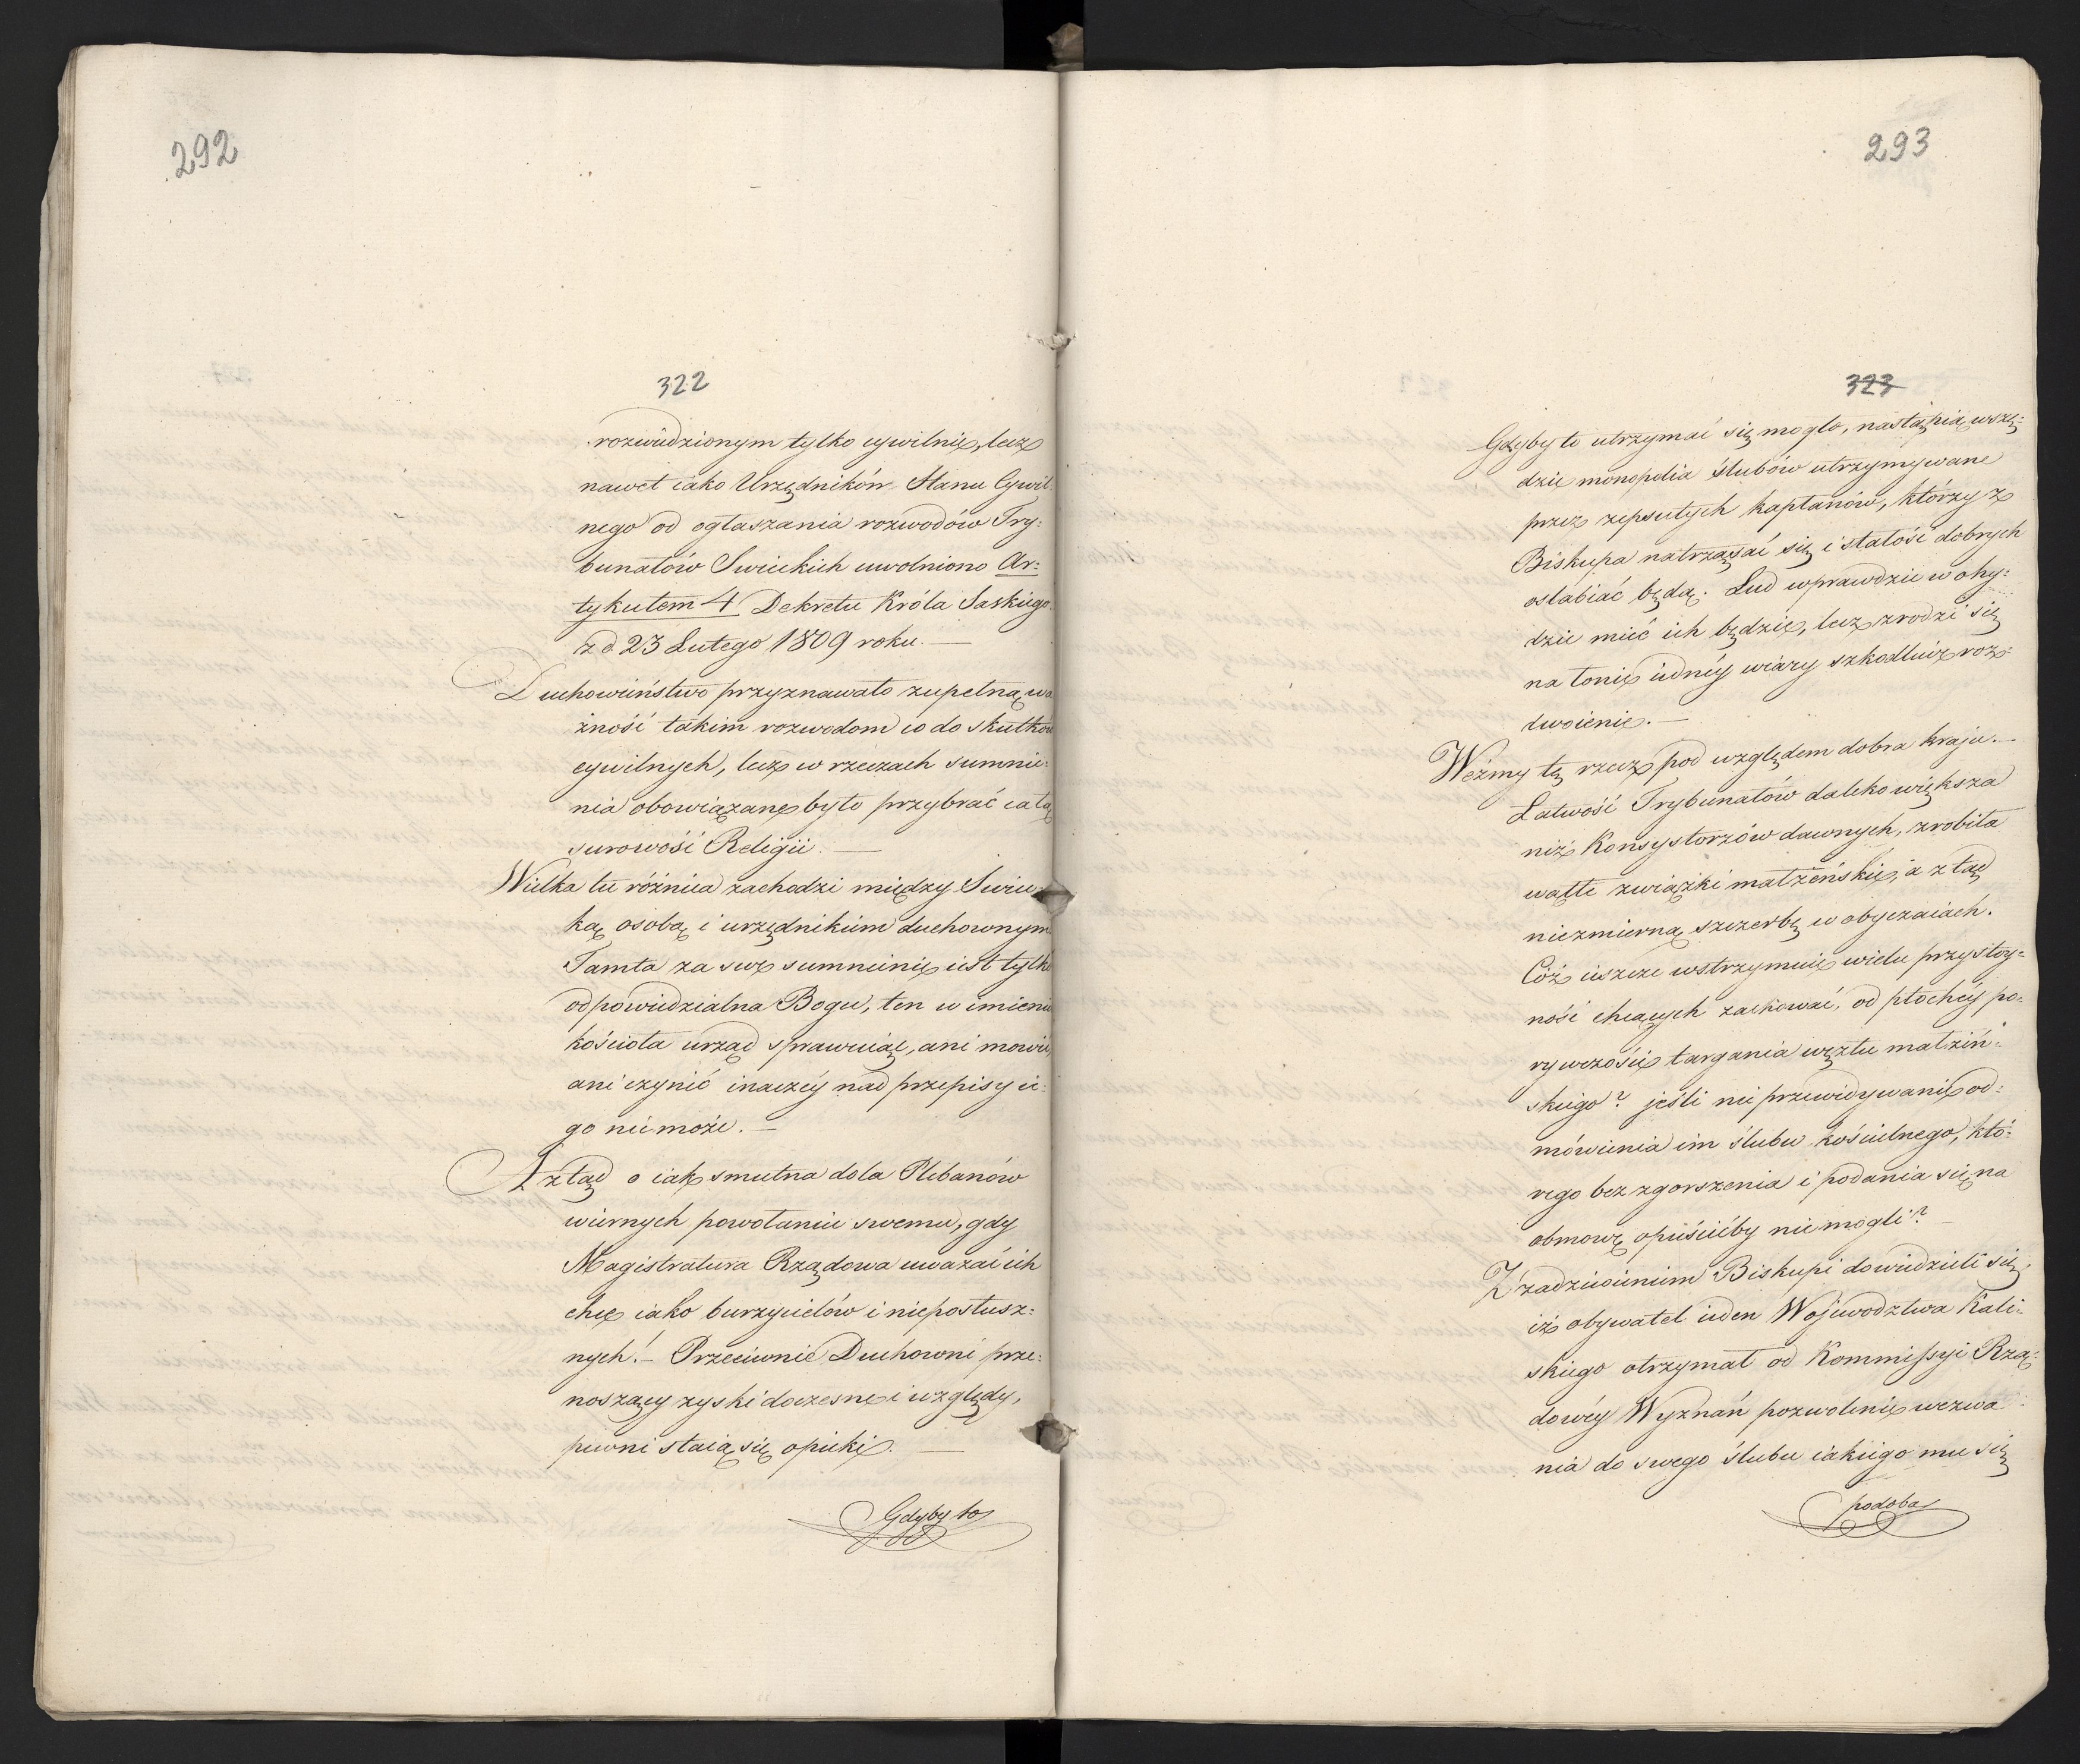 292
322
rozwiedzionym tylko cywilnie, lecz
nawet iako Urzędników Stanu Cywil:
nego od ogłaszania rozwodów Try:
bunałów Swieckich uwolniono Ar:
tykułem 4 Dekretu Króla Saskiego
z d 23 Lutego 1809 roku. —
Duchowieństwo przyznawało zupełną wa
żność takim rozwodom co do skutków
cywilnych, lecz w rzeczach sumnie:
nia obowiązane było przybrać całą
surowość Religii. —
Wielka tu różnica zachodzi między Swiec
ką osobą i urzędnikiem duchownym
Tamta za swe sumnienie iest tylko
odpowiedzialna Bogu, ten w imieniu
kościoła urząd sprawuiąc, ani mówić,
ani czynić inaczéy nad przepisy ie:
go nie może. —
A ztąd o iak smutna dola Plebanów
wiernych powołaniu swemu, gdy
Magistratura Rządowa uważać ich
chce iako burzycielów i nieposłusz:
nych! — Przeciwnie Duchowni prze:
noszący zyski doczesne i względy,
pewni staią się opieki. —
Gdyby to
293
323
Gdyby to utrzymać się mogło, nastąpią wszę:
dzie monopolia ślubów utrzymywane
przez zepsutych kapłanów, którzy z
Biskupa natrząsać się i stałość dobrych
osłabiać będą. Lud wprawdzie w ohy:
dzie mieć ich będzie, lecz zrodzi się
na łonie iednéy wiary szkodliwe roz:
dwoienie. —
Weźmy tę rzecz pod względem dobra kraju. —
Łatwość Trybunałów daleko większa
niż Konsystorzów dawnych, zrobiła
wątłe związki małżeńskie, a ztąd
niezmierną szczerbę w obyczaiach.
Cóż ieszcze wstrzymuie wielu przystoy:
ność chcących zachować, od płochéy po:
rywczości targania węzłu małżeń:
skiego? jeśli nie przewidywanie od:
mówienia im ślubu kościelnego, któ:
rego bez zgorszenia i podania się na
obmowę opuścićby nie mogli? —
Z zadziwieniem Biskupi dowiedzieli się,
iż obywatel ieden Wojewodztwa Kali:
skiego otrzymał od Kommissyi Rzą:
dowéy Wyznań pozwolenie wezwa:
nia do swego ślubu iakiego mu się
podoba